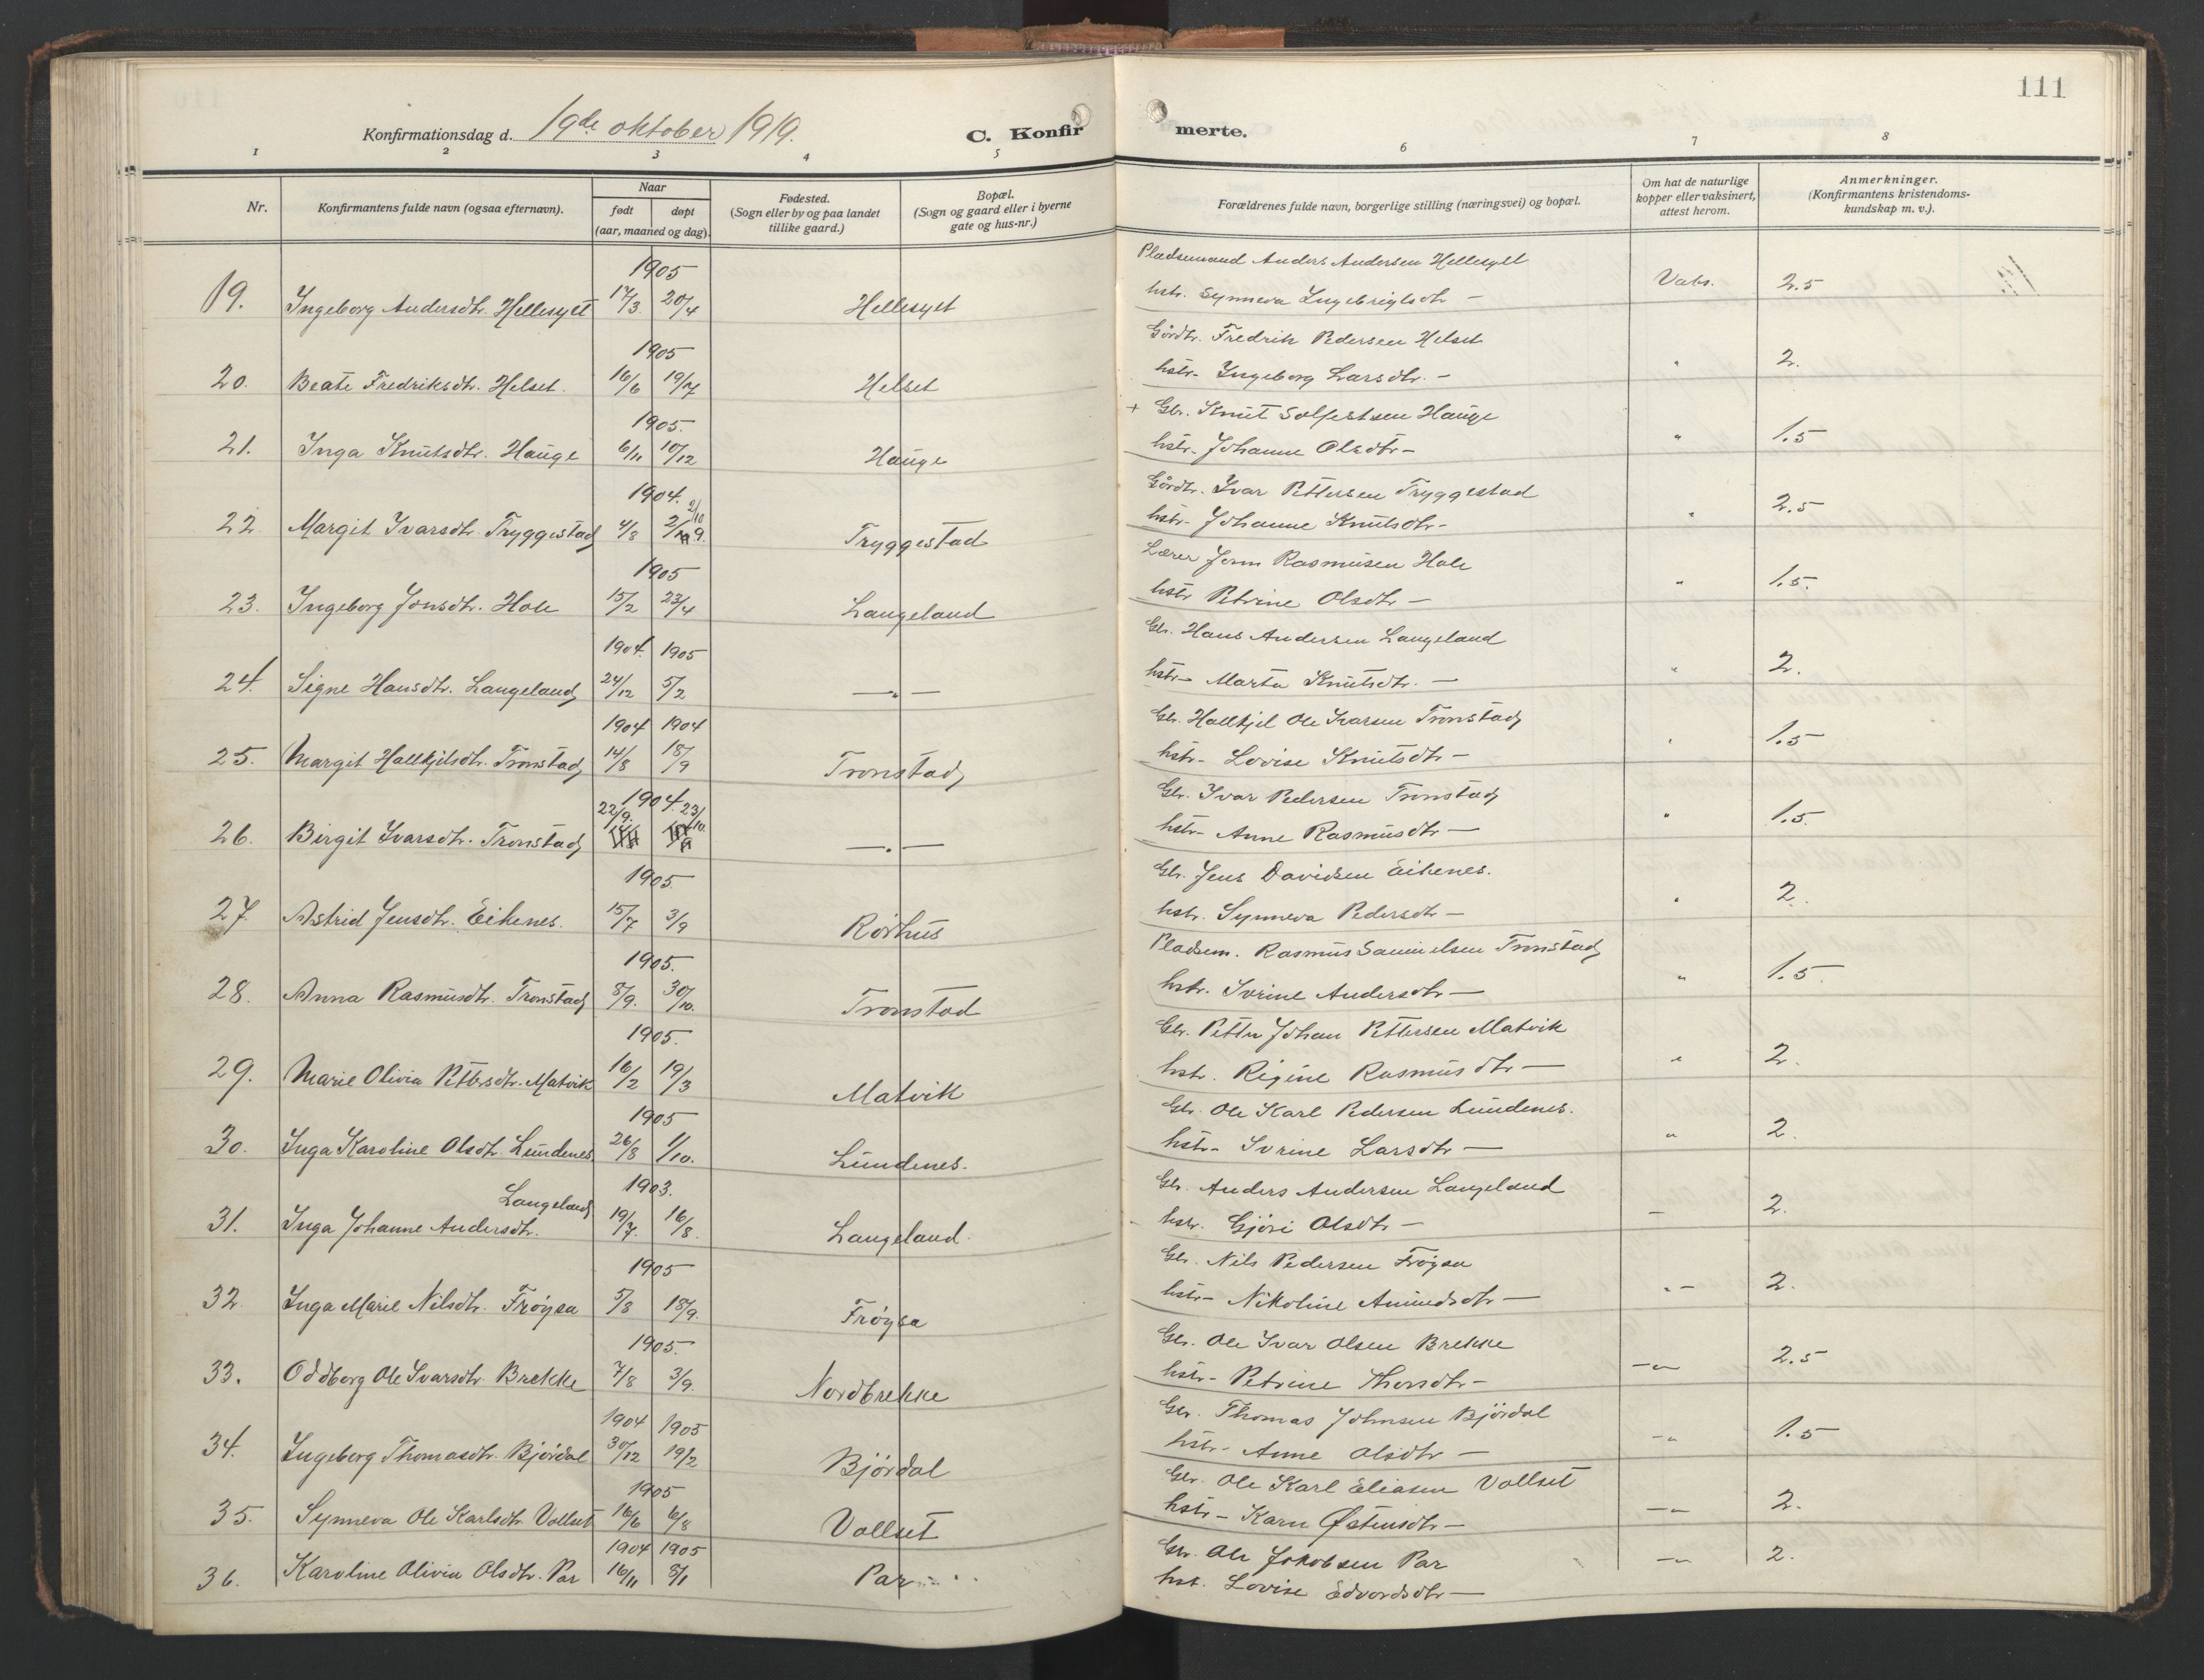 111
Konfirmationsdag d. 19de oktober 1919.
C. Konfir merte.
1 2 3 4 5 6 7 8
Nr.
Konfirmantens fulde navn (ogsaa efternavn).
Naar
født
døpt
(aar, maaned og dag).
Fødested.
(Sogn eller by og paa landet
tillike gaard.)
Bopæl.
(Sogn og gaard eller i byerne
gate og hus-nr.)
Forældrenes fulde navn, borgerlige stilling (næringsvei) og bopæl.
Om hat de naturlige
kopper eller vaksinert,
attest herom.
Anmerkninger.
(Konfirmantens kristendoms-
kundskap m. v.).
1905
Pladsemand Anders Andersen Hellesylt
19. Ingeborg Andersdtr. Hellesylt 17/3 20/4 Hellesylt hstr. Synneva Ingebrigtsdtr — Vaks. 2.5
1905
Gårdbr. Fredrik Pedersen Helset
20. Beate Fredriksdtr. Helset. 16/6 19/7 Helset hstr. Ingeborg Larsdtr. — " 2.
1905.
+ Gbr. Knut Solfestsen Hauge
21. Inga Knutsdtr. Hauge 6/11 10/12 Hauge hstr. Johanne Olsdtr — " 1.5
1904. 2/10
Gårdbr. Ivar Pettersen Tryggestad
22. Margit Ivarsdtr. Tryggestad 4/8 Tryggestad hstr. Johanne Knutsdtr — " 2.5
1905
Lærer Jorn Rasmusen Hole
23. Ingeborg Jonsdtr. Hole 15/2 23/4 Langeland hstr Petrine Olsdtr — " 1.5
1904. 1905
Gbr. Hans Andersen Langeland
24. Signe Hansdtr. Langeland 24/12 5/2 — " — hstr. Marta Knutsdtr. — " 2.
1904 1904
Gbr. Hallkjel Ole Ivarsen Tronstad
25. Margit Hallkjelsdtr. Tronstad 14/8 18/9 Tronstad hstr. Lovise Knutsdtr — " 1.5
1904.
22/9. 23/10.
Gbr. Ivar Pedersen Tronstad
26. Birgit Ivarsdtr. Tronstad — " — hstr. Anne Rasmusdtr — " 1.5
1905.
Gbr. Jens Davidsen Eikenes.
27. Astrid Jensdtr. Eikenes. 15/7 3/9 Rørhus hstr. Synneva Pedersdtr — " 2.
1905.
Pladsem. Rasmus Samuelsen Tronstad
28. Anna Rasmusdtr. Tronstad 8/9. 30/10. Tronstad hstr. Ivrine Andersdtr — " 1.5
1905.
Gbr. Petter Johan Pettersen Matvik
29. Marie Olivia Pettersdtr. Matvik 16/2 19/3 Matvik hstr. Regine Rasmusdtr — " 2.
1905
Gbr. Ole Karl Pedersen Lundenes.
30. Inga Karoline Olsdtr. Lundenes 26/8 1/10. Lundenes. hstr. Ivrine Larsdtr — " 2.
Langeland 1903.
Gbr. Anders Andersen Langeland
31. Inga Johanne Andersdtr. 19/7. 16/8 Langeland. hstr. Gjøri Olsdtr — — 2.
1905
Gbr. Nils Pedersen Frøysa
32. Inga Marie Nilsdtr. Frøysa 5/8 18/9. Frøysa hstr. Nikoline Amundsdtr — " — 2.
1905.
Gbr. Ole Ivar Olsen Brekke
33. Oddborg Ole Ivarsdtr. Brekke 7/8 3/9. Nordbrekke hstr. Petrine Thorsdtr — — " 2.5
1904 1905
Gbr. Thomas Johnsen Bjørdal
34. Ingeborg Thomasdtr. Bjørdal 30/12 19/2 Bjørdal hstr. Anne Olsdtr — — " 1.5
1905
Gbr. Ole Karl Eliasen Vollset
35. Synneva Ole Karlsdtr. Vollset 16/6 6/8 Vollset hstr. Karn Østensdtr — — " 2.
1904 1905
Gbr. Ole Jakobsen Par
36. Karoline Olivia Olsdtr. Par 16/11 8/1 Par hst. Lovise Edvardsdtr — — " 2.